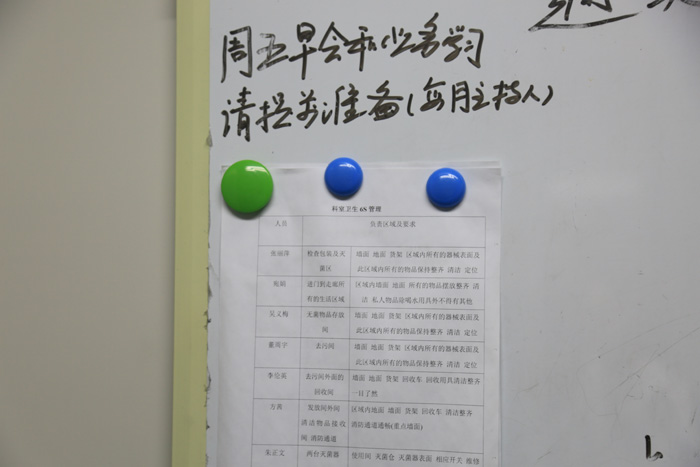 周五早会和业务学习
请提前准备(每月主持人)
科室卫生6S管理
人员 负责区域及要求
张丽萍 检查包装及灭菌区 墙面 地面 货架 区域内所有的器械表面及此区域内所有的物品保持整齐 清洁 定位
进门到走廊所有的生活区域 区域内墙面 地面 所有的物品摆放整齐 清洁 私人物品除喝水用具外不得有其他
吴义梅 无菌物品存放间 墙面 地面 货架 区域内所有的器械表面及此区域内所有的物品保持整齐 清洁 定位
董雨宇 去污间 墙面 地面 货架 区域内所有的器械表面及此区域内所有的物品保持整齐 清洁 定位
李伦英 去污间外面的回收间 墙面 地面 货架 回收车 回收用具清洁整齐一目了然
方茜 发放间外间 清洁物品接收间 消防通道 区域内地面 墙面 货架 回收车 清洁整齐 消防通道通畅(重点墙面)
朱正文 两台灭菌器 使用间 灭菌仓 灭菌器表面 相应开关 维修